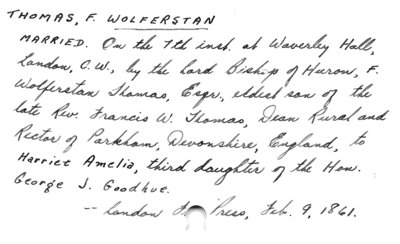 THOMAS, F. WOLFERSTAN
MARRIED. On the 7th inst. at Waverley Hall,
London, C.W., by the Lord Bishop of Huron, F.
Wolferstan Thomas, Esqr., eldest son of the
late Rev. Francis W. Thomas, Dean Rural and
Rector of Parkham, Devonshire, England, to
Harriet Amelia, third daughter of the Hon.
George J. Goodhue.
-- London Press, Feb. 9, 1861.